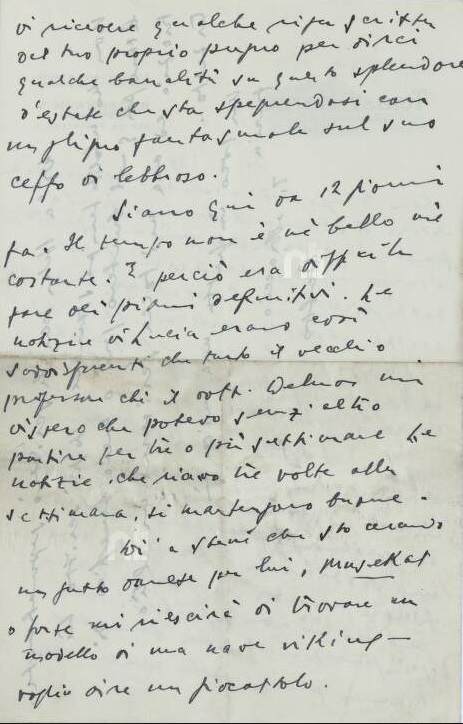 di ricevere qualche riga scritta
dal tuo proprio pugno per dirci
qualche banalità su questo splendore
d'estate che sta spegnendosi con
un ghigno fantasmale sul suo
ceffo di lebbroso.
Siamo qui da 12 giorni
fa. Il tempo non è nè bello nè
costante. E perciò era difficile
fare dei piani definitivi. Le
notizie di Lucia erano così
soddisfacenti che tanto il vecchio
professore che il dott. Delmas mi
dissero che potevo senz'altro
partire per tre o più settimane. Le
notizie, che ricevo tre volte alla
settimana, si mantengono buone.
Di' a Stevie che sto cercando
un gatto danese per lui, Musekat
o forse mi riescirà di trovare un
modello di una nave viking –
voglio dire un giocattolo.